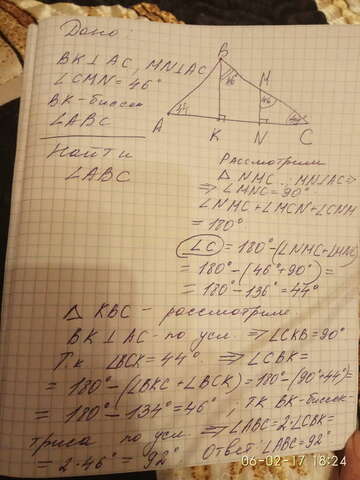 Дано:
BK⊥AC, MN⊥AC
∠CMN = 46°
BK - биссек
∠ABC
Найти
∠ABC
B
46°
M
46
44
44
A
K
N
C
Рассмотрим
△ NMC : MN⊥AC ⇒
⇒ ∠MNC = 90°
∠NMC + ∠MCN + ∠CNM
= 180°
∠C = 180° - (∠NMC + ∠MNC)
= 180° - (46° + 90°) =
= 180° - 136° = 44°
△ KBC - рассмотрим
BK ⊥ AC - по усл. ⇒ ∠CKB = 90°
Т.к ∠BCK = 44° ⇒ ∠CBK =
= 180° - (∠BKC + ∠BCK) = 180° - (90° + 44°) =
= 180° - 134° = 46°, тк BK - бисек-
триса по усл. ⇒ ∠ABC = 2·∠CBK =
= 2·46° = 92°. Ответ: ∠ABC = 92°
06-02-17 18:24